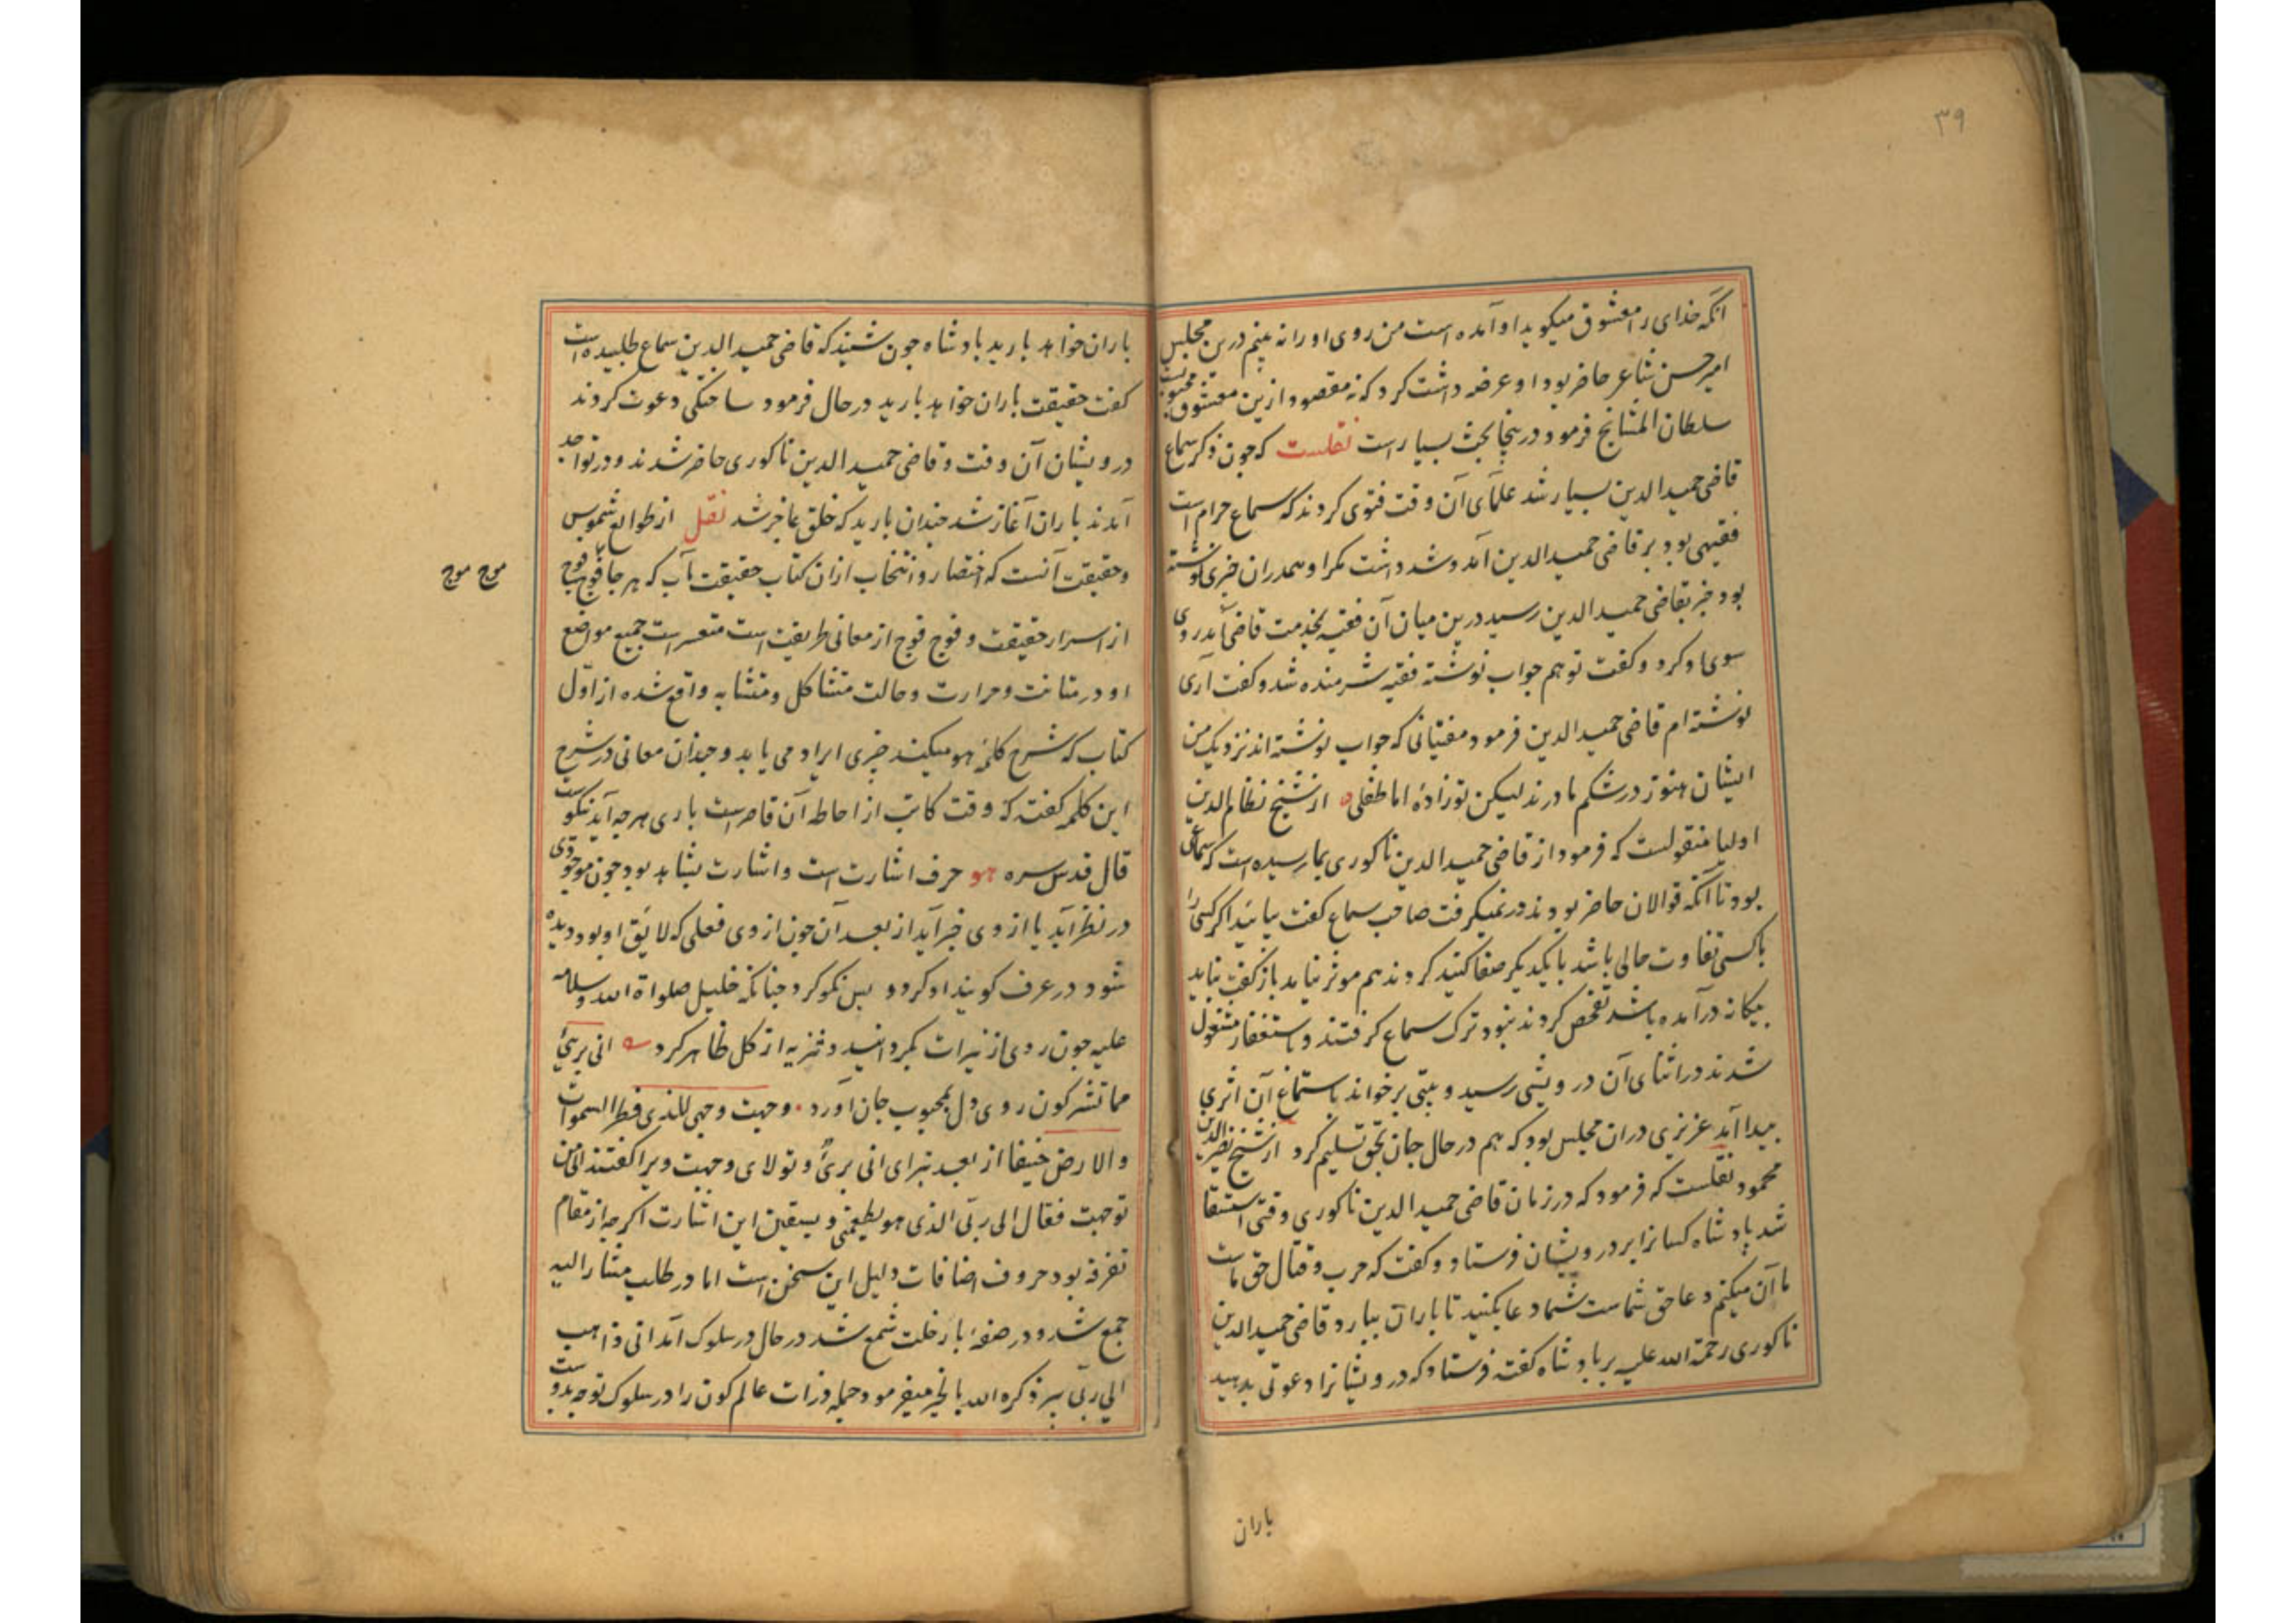 ۳۹
انکه خدای را معشوق میکوید او آمده است من روی او را نه بینم درین مجلس
امیر حسن شاعر حاضر بود او عرضه داشت کرد که نه مقصود ازین معشوق محبوبست
سلطان المشایخ فرمود درینجا بحث بسیار است نقلست که چون ذکر سماع
قاضی حمید الدین بسیار شد علمای آن وقت فتوی کردند که سماع حرام است
فقیهی بود بر قاضی حمید الدین آمد و شد داشت مکر او همدران چیزی نوشته
بود خبر بقاضی حمید الدین رسید درین میان آن فقیه بخدمت قاضی آمد روی
سوی او کرد و کفت تو هم جواب نوشته فقیه شرمنده شد و کفت آری
نوشته ام قاضی حمید الدین فرمود مفتیانی که جواب نوشته اند نزدیک من
ایشان هنوز در شکم مادرند لیکن تو زادهٔ اما طفلی از شیخ نظام الدین
اولیا منقولست که فرمود از قاضی حمید الدین ناکوری بما رسیده است که سماعی
بود تا آنکه قوالان حاضر بودند در نمیکرفت صاحب سماع کفت بیائید اکر کسی را
باکسی تفاوت حالی باشد بایکدیکر صفا کنید کردند هم موثر نیامد باز کفت نباید
بیکانه درآمده باشد تفحص کردند نبود ترک سماع کرفتند و باستغفار مشغول
شدند در اثنای آن درویشی رسید و بیتی برخواند باستماع آن اثری
پیدا آمد عزیزی دران مجلس بود که هم در حال جان بحق تسلیم کرد از شیخ نصیر الدین
محمود نقلست که فرمود که در زمان قاضی حمید الدین ناکوری وقتی استسقا
شد پادشاه کسانرا بر درویشان فرستاد و کفت که حرب و قتال حق ماست
ما آن میکنیم دعا حق شماست شما دعا بکنید تا باران ببارد قاضی حمید الدین
ناکوری رحمة الله علیه بر پادشاه کفته فرستاد که درویشانرا دعوتی بدهید
باران
باران خواهد بارید پادشاه چون شنید که قاضی حمید الدین سماع طلبیده است
کفت حقیقت باران خواهد بارید در حال فرمود ساختکی دعوت کردند
درویشان آن وقت و قاضی حمید الدین ناکوری حاضر شدند و در تواجد
آمدند باران آغاز شد چندان بارید که خلق عاجز شد نقل از طوالع شموس
و حقیقت آنست که اختصار و انتخاب ازان کتاب حقیقت مآب که هر جا فوج فوج
موج موج
از اسرار حقیقت و فوج فوج از معانی طریقت است متعسر است جمیع مواضع
او در متانت و حرارت و حالت متشاکل و متشابه واقع شده از اول
کتاب که شرح کلمهٔ هو میکند چیزی ایراد می یابد و چندان معانی در شرح
این کلمه کفت که وقت کاتب از احاطه آن قاصر است باری هر چه آید نکوست
قال قدس سره هو حرف اشارت است و اشارت بشاهد بود چون موجودی
در نظر آید یا از وی خبر آید از بعد آن چون از وی فعلی که لایق او بود دیده
شود در عرف کویند او کرد و بس نکو کرد چنانکه خلیل صلواة الله و سلامه
علیه چون روی از نیرات بکردانید و تنزیه از کل ظاهر کرد انی بریٔ
مما تشرکون روی دل بمحبوب جان آورد وجهت وجهی للذی فطر السموات
والارض حنیفا از بعد تبرای انی بریٔ و تولای وجهت ویرا کفتند الی من
توجهت فقال الی ربی الذی هو یطعمنی و یسقین این اشارت اکرچه از مقام
تفرقه بود حروف اضافات دلیل این سخن است اما در طلب مشار الیه
جمع شد و در صفهٔ بار خلت شمع شد در حال در سلوک آمد انی ذاهب
الی ربی پیر ذکره الله بالخیر میفرمود جمله ذرات عالم کون را در سلوک توجه بدوست